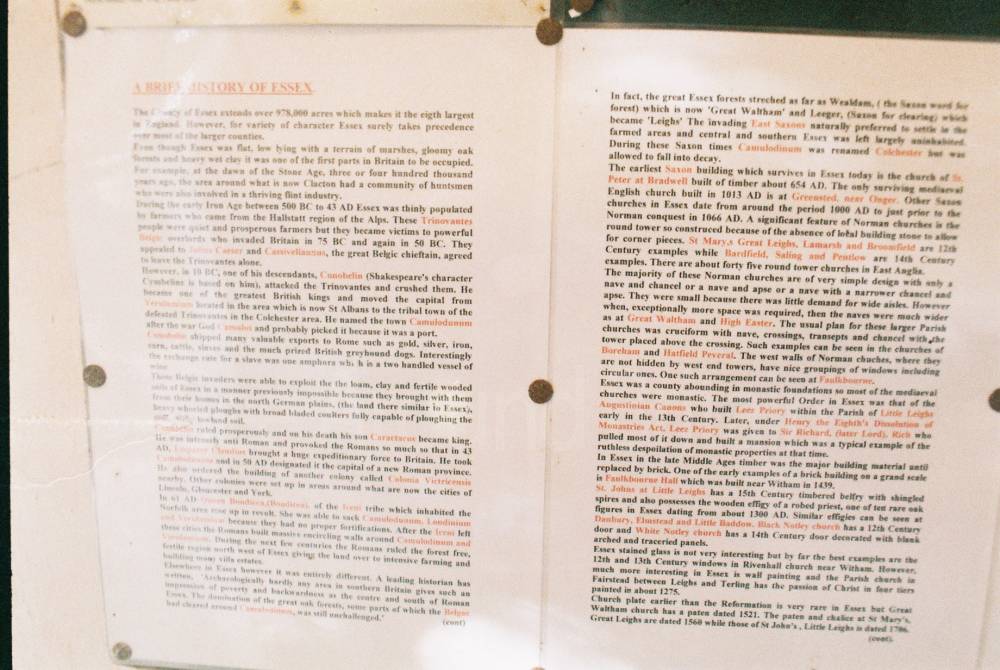 A BRIEF HISTORY OF ESSEX.
The County of Essex extends over 978,000 acres which makes it the eigth largest
in England. However, for variety of character Essex surely takes precedence
over most of the larger counties.
Even though Essex was flat, low lying with a terrain of marshes, gloomy oak
forests and heavy wet clay it was one of the first parts in Britain to be occupied.
For example, at the dawn of the Stone Age, three or four hundred thousand
years ago, the area around what is now Clacton had a community of huntsmen
who were also involved in a thriving flint industry.
During the early Iron Age between 500 BC to 43 AD Essex was thinly populated
by farmers who came from the Hallstatt region of the Alps. These Trinovantes
people were quiet and prosperous farmers but they became victims to powerful
Belgic overlords who invaded Britain in 75 BC and again in 50 BC. They
appealed to Julius Caesar and Cassivellaunus, the great Belgic chieftain, agreed
to leave the Trinovantes alone.
However, in 10 BC, one of his descendants, Cunobelin (Shakespeare's character
Cymbeline is based on him), attacked the Trinovantes and crushed them. He
became one of the greatest British kings and moved the capital from
Verulamium located in the area which is now St Albans to the tribal town of the
defeated Trinovantes in the Colchester area. He named the town Camulodunum
after the war God Camulos and probably picked it because it was a port.
Cunobelin shipped many valuable exports to Rome such as gold, silver, iron,
corn, cattle, slaves and the much prized British greyhound dogs. Interestingly
the exchange rate for a slave was one amphora which is a two handled vessel of
wine.
These Belgic invaders were able to exploit the the loam, clay and fertile wooded
soils of Essex in a manner previously impossible because they brought with them
from their homes in the north German plains, (the land there similar to Essex),
heavy wheeled ploughs with broad bladed coulters fully capable of ploughing the
stiff, lowland soil.
Cunobelin ruled prosperously and on his death his son Caractacus became king.
He was intensely anti Roman and provoked the Romans so much so that in 43
AD, Emperor Claudius brought a huge expeditionary force to Britain. He took
Camulodunum and in 50 AD designated it the capital of a new Roman province.
He also ordered the building of another colony called Colonia Victricensis
nearby. Other colonies were set up in areas around what are now the cities of
Lincoln, Gloucester and York.
In 61 AD Queen Boudicca,(Boadicea), of the Iceni tribe which inhabited the
Norfolk area rose up in revolt. She was able to sack Camulodunum, Londinium
and Verulamium because they had no proper fortifications. After the Iceni left
these cities the Romans built massive encircling walls around Camulodunum and
Verulamium. During the next few centuries the Romans ruled the forest free,
fertile region north west of Essex giving the land over to intensive farming and
building many villa estates.
Elsewhere in Essex however it was entirely different. A leading historian has
written, 'Archaeologically hardly any area in southern Britain gives such an
impression of poverty and backwardness as the centre and south of Roman
Essex. The domination of the great oak forests, some parts of which the Belgae
had cleared around Camulodunum, was still unchallenged.'
(cont)
In fact, the great Essex forests streched as far as Wealdam, ( the Saxon word for
forest) which is now 'Great Waltham' and Leeger, (Saxon for clearing) which
became 'Leighs' The invading East Saxons naturally preferred to settle in the
farmed areas and central and southern Essex was left largely uninhabited.
During these Saxon times Camulodinum was renamed Colchester but was
allowed to fall into decay.
The earliest Saxon building which survives in Essex today is the church of St.
Peter at Bradwell built of timber about 654 AD. The only surviving mediaeval
English church built in 1013 AD is at Greensted, near Ongar. Other Saxon
churches in Essex date from around the period 1000 AD to just prior to the
Norman conquest in 1066 AD. A significant feature of Norman churches is the
round tower so construced because of the absence of lokal building stone to allow
for corner pieces. St Mary,s Great Leighs, Lamarsh and Broomfield are 12th
Century examples while Bardfield, Saling and Pentlow are 14th Century
examples. There are about forty five round tower churches in East Anglia.
The majority of these Norman churches are of very simple design with only a
nave and chancel or a nave and apse or a nave with a narrower chancel and
apse. They were small because there was little demand for wide aisles. However
when, exceptionally more space was required, then the naves were much wider
as at Great Waltham and High Easter. The usual plan for these larger Parish
churches was cruciform with nave, crossings, transepts and chancel with the
tower placed above the crossing. Such examples can be seen in the churches of
Boreham and Hatfield Peveral. The west walls of Norman chuches, where they
are not hidden by west end towers, have nice groupings of windows including
circular ones. One such arrangement can be seen at Faulkbourne.
Essex was a county abounding in monastic foundations so most of the mediaeval
churches were monastic. The most powerful Order in Essex was that of the
Augustinian Canons who built Leez Priory within the Parish of Little Leighs
early in the 13th Century. Later, under Henry the Eighth's Dissolution of
Monastries Act, Leez Priory was given to Sir Richard, (later Lord), Rich who
pulled most of it down and built a mansion which was a typical example of the
ruthless despoilation of monastic properties at that time.
In Essex in the late Middle Ages timber was the major building material until
replaced by brick. One of the early examples of a brick building on a grand scale
is Faulkbourne Hall which was built near Witham in 1439.
St. Johns at Little Leighs has a 15th Century timbered belfry with shingled
spires and also possesses the wooden effigy of a robed priest, one of ten rare oak
figures in Essex dating from about 1300 AD. Similar effigies can be seen at
Danbury, Elmstead and Little Baddow. Black Notley church has a 12th Century
door and White Notley church has a 14th Century door decorated with blank
arched and traceried panels.
Essex stained glass is not very interesting but by far the best examples are the
12th and 13th Century windows in Rivenhall church near Witham. However,
much more interesting in Essex is wall painting and the Parish church in
Fairstead between Leighs and Terling has the passion of Christ in four tiers
painted in about 1275.
Church plate earlier than the Reformation is very rare in Essex but Great
Waltham church has a paten dated 1521. The paten and chalice at St Mary's,
Great Leighs are dated 1560 while those of St John's , Little Leighs is dated 1706.
(cont).